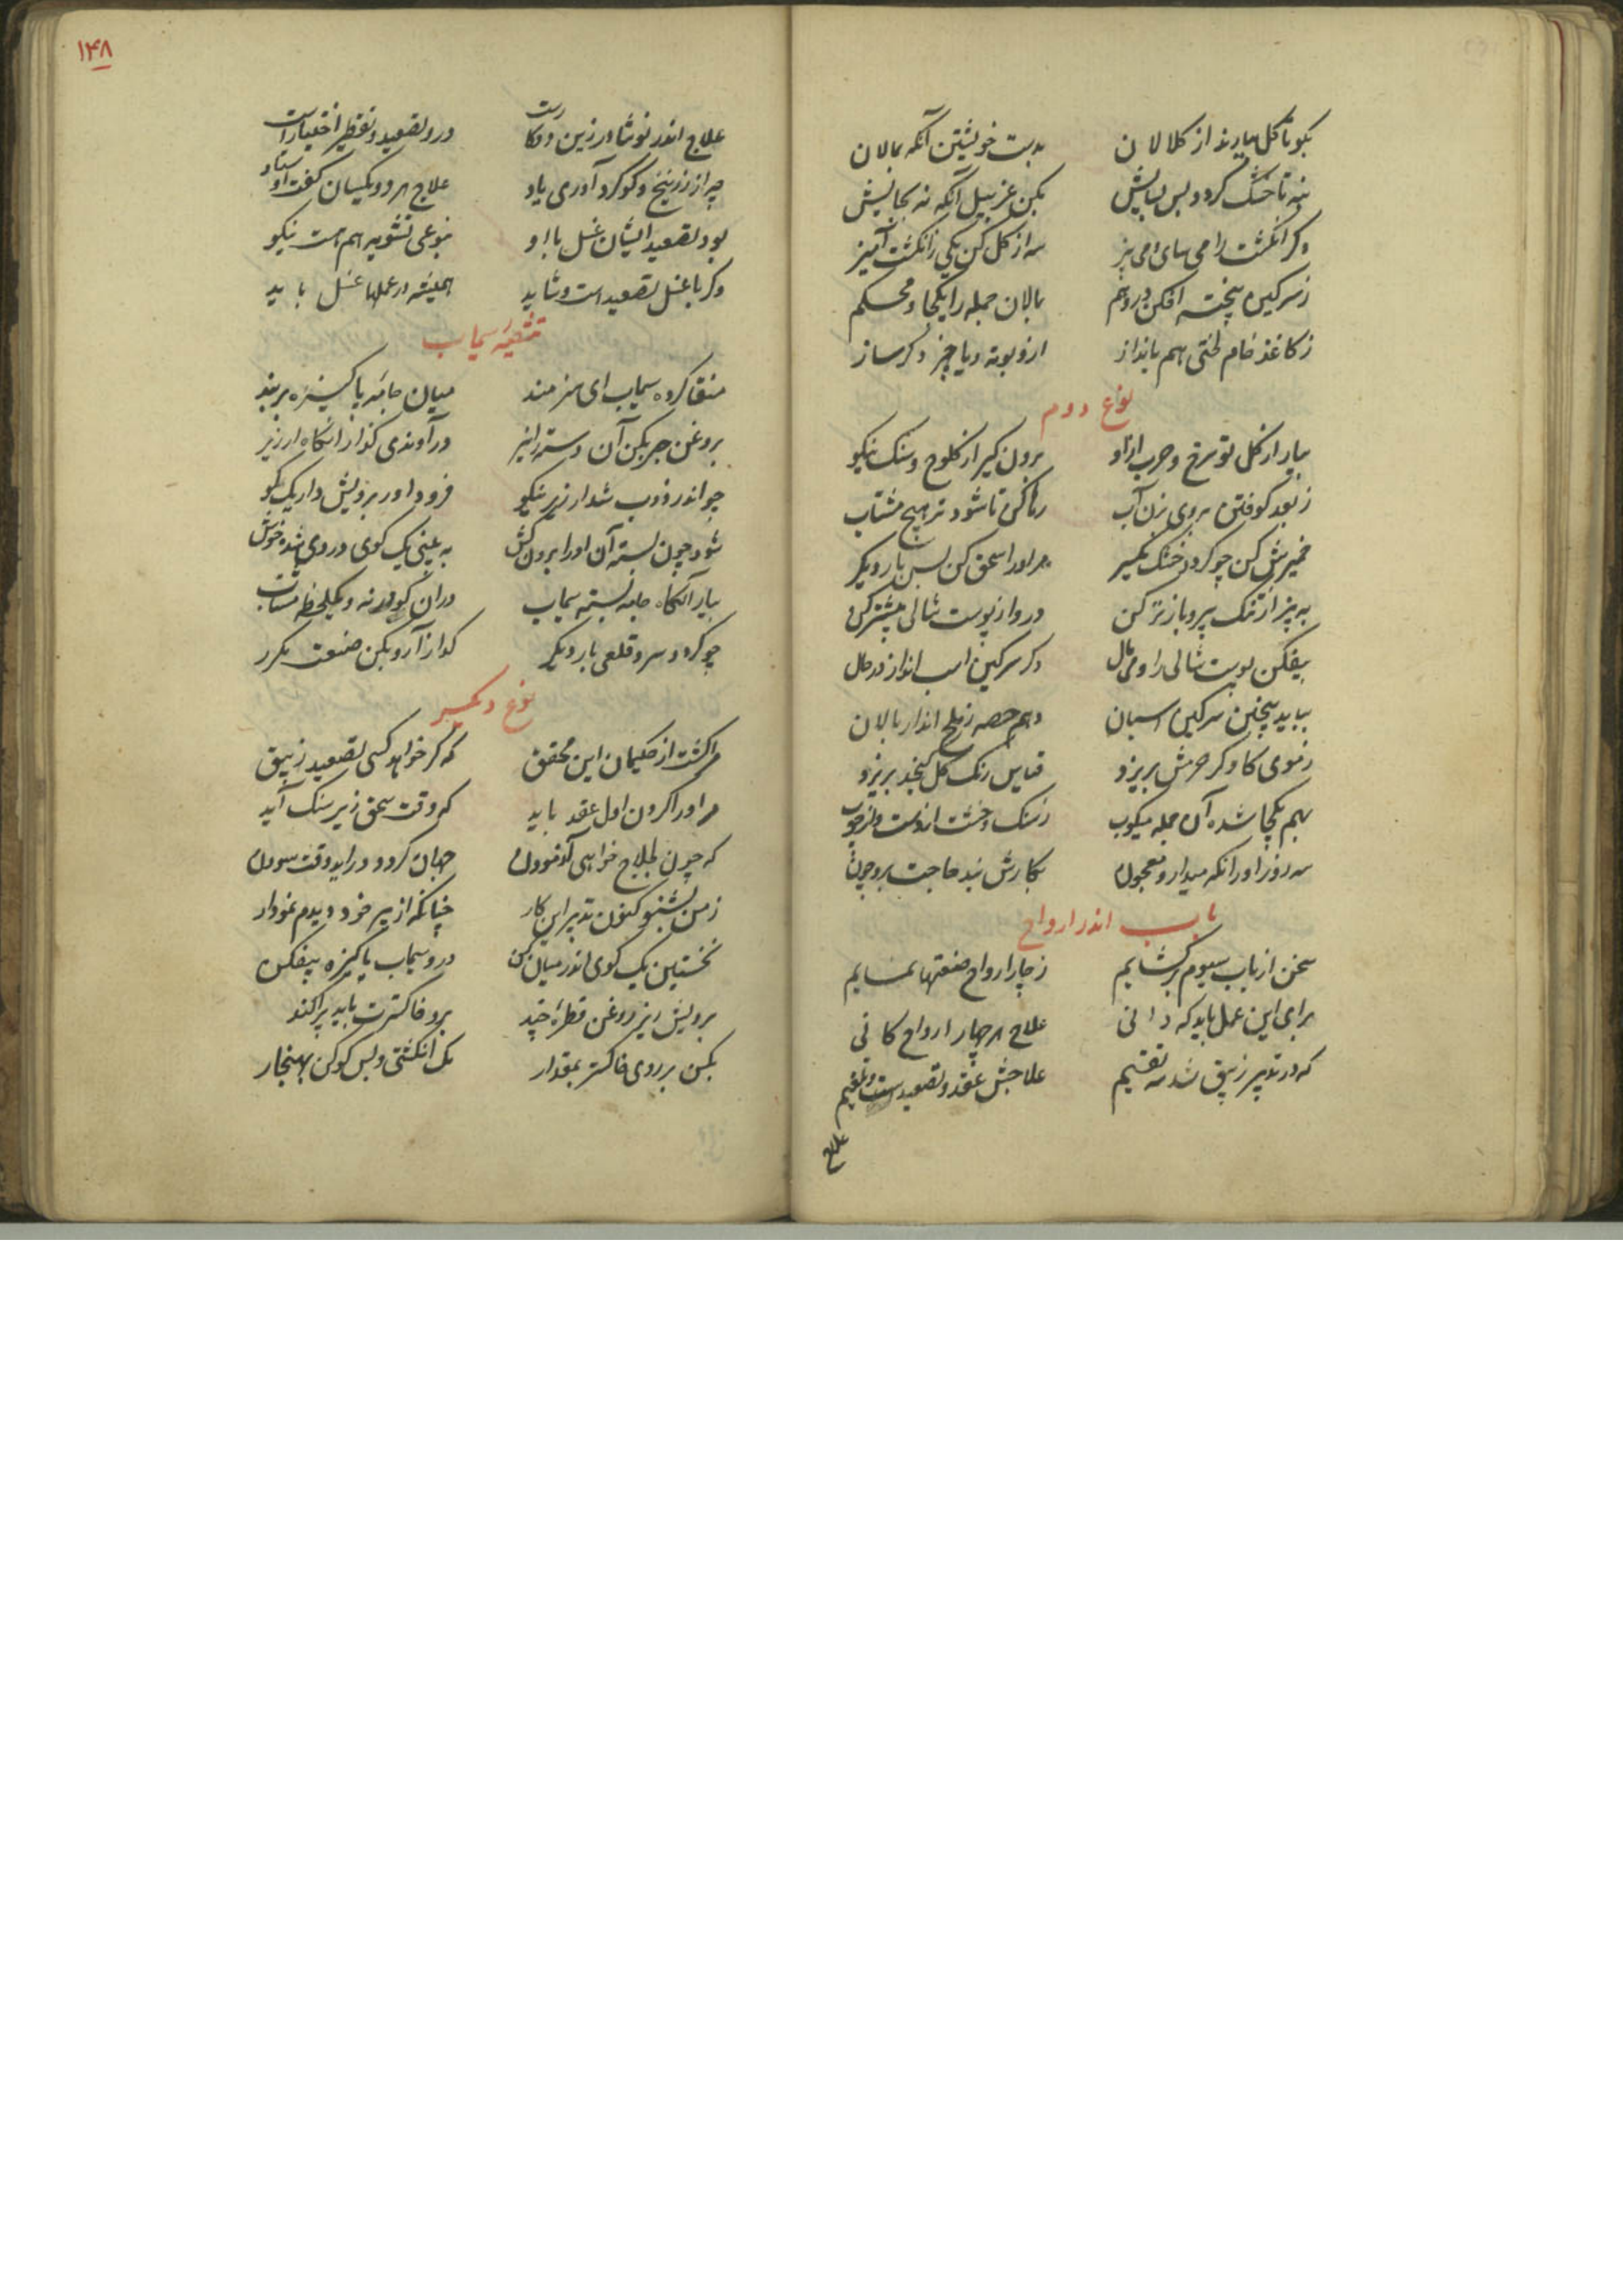 بکو تا کل بیارند از کلالان بدست خویشتن آنکه بمالان
بنه تا خشک کردد پس بپایش بکن غربیل آنکه نه بجایش
دکر انکشت را می سای و می بیز سه از کل کن یکی ز انکشت آمیز
ز سرکین پخته افکن در وهم بمالان جمله را یکجا و محکم
ز کاغذ خام لختی هم بانداز ازو بوته و یا چیز دکر ساز
نوع دوم
بیار از کل تو سرخ و چرب ازاو برون کیر از کلوخ و سنک نیکو
ز بعد کوفتن بروی بزن آب رها کن تا شود تر هیچ مشتاب
خمیرش کن چو کردد خشک بکیر مر اورا سحق کن پس بار دیکر
به بیز از تنک بیز و باز تر کن درو از پوست شالی بیشتر کن
بیفکن پوست شالی را و می مال دکر سرکین اسب انداز در حال
بباید بیختن سرکین اسپان دهم حصه ز بلخ انداز بالان
ز موی کاو کر خرمش بریزد قیاس رنک کل کنجد بریزد
بهم یکجا شده آن جمله میکوب ز سنک و خشت از دست و از چوب
سه روز اورا نکه میدار و معجون بکارش بند حاجت بر وچون
باب اندر ارواح
سخن از باب سیوم بر کشایم ز چار ارواح صنعتها نمایم
برای این عمل باید که دانی علاج هر چهار ارواح کانی
که در تدبیر زیبق شد سه تقسیم علاجش عقد و تصعیدست و تقیم
علاج
۱۴۸
علاج اندر نوشادر زین دو کارست درو تصعید و تقطیر اختیارست
چه از زرنیخ و کوکرد آوری یاد علاج هر دو یکسان کفت استاد
بود تصعید ایشان غسل با او بنوعی تشویه هم هست نیکو
وکر با غسل تصعید است و شاید همیشه در عملها غسل باید
تنقیهٔ سیماب
منقا کرده سیماب ای هنرمند میان جامهٔ پاکیزه بربند
بروغن چرب کن آن دسته را نیز در آوندی کداز آنکاه ارزیز
چو اندر ذوب شد ارزیر نیکو فرود آور برویش دار یک کو
شود چون بسته آن اورا برون کش به بینی یک کوی در وی شده خوش
بیار آنکاه جامه بسته سیماب دران کو در نه و یکلحظه مشتاب
چو کردد سرد قلعی بار دیکر کداز آر و بکن صنعت مکرر
نوع دیکر
مرا کشت از حکیمان این محقق که کر خواهد کسی تصعید زیبق
مر اورا کردن اول عقد باید که وقت سحق زیر سنک آید
که چون بعلاج خواهی آزمودن جهان کردد در اید وقت سودن
ز من بشنو کنون تدبیر این کار چنانکه از پیر خود دیدم نمودار
نخستین یک کوی اندر میان کن درو سیماب پاکیزه بیفکن
برویش ریز روغن قطرهٔ چند برو خاکسترت باید پراکند
بکن بر روی خاکستر بمقدار نمک انکشتی و پس کو کن بهنجار